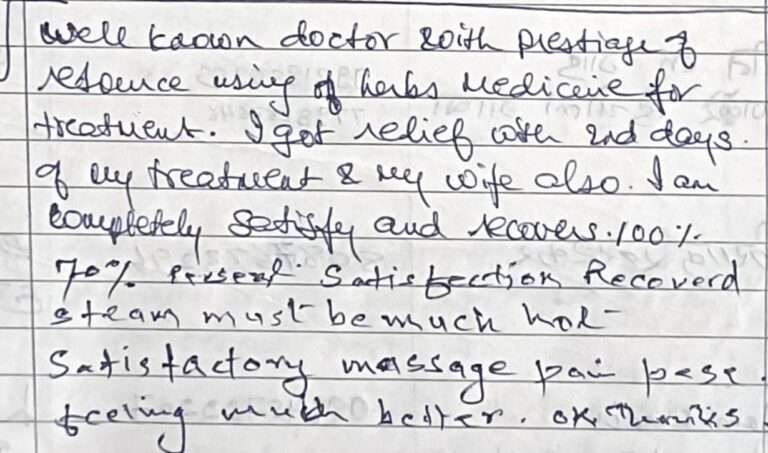 well known doctor with prestiage of
resource using of herbs Medicine for
treatment. I got relief with 2nd days.
of my treatment & my wife also. I am
completely satisfy and recovers. 100%
70% Satisfection Recoverd
steam must be much hot
Satisfactory massage pain
feeling much better. ok Thanks